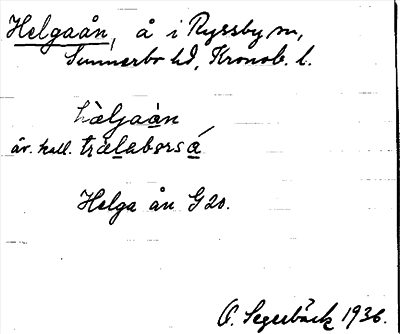 Helgaån, å i Ryssby sn,
Sunnerbo hd, Kronob. l.
häljaàn
äv. kall. trälaborså
Helga ån G 20.
O. Segerbäck 1936.